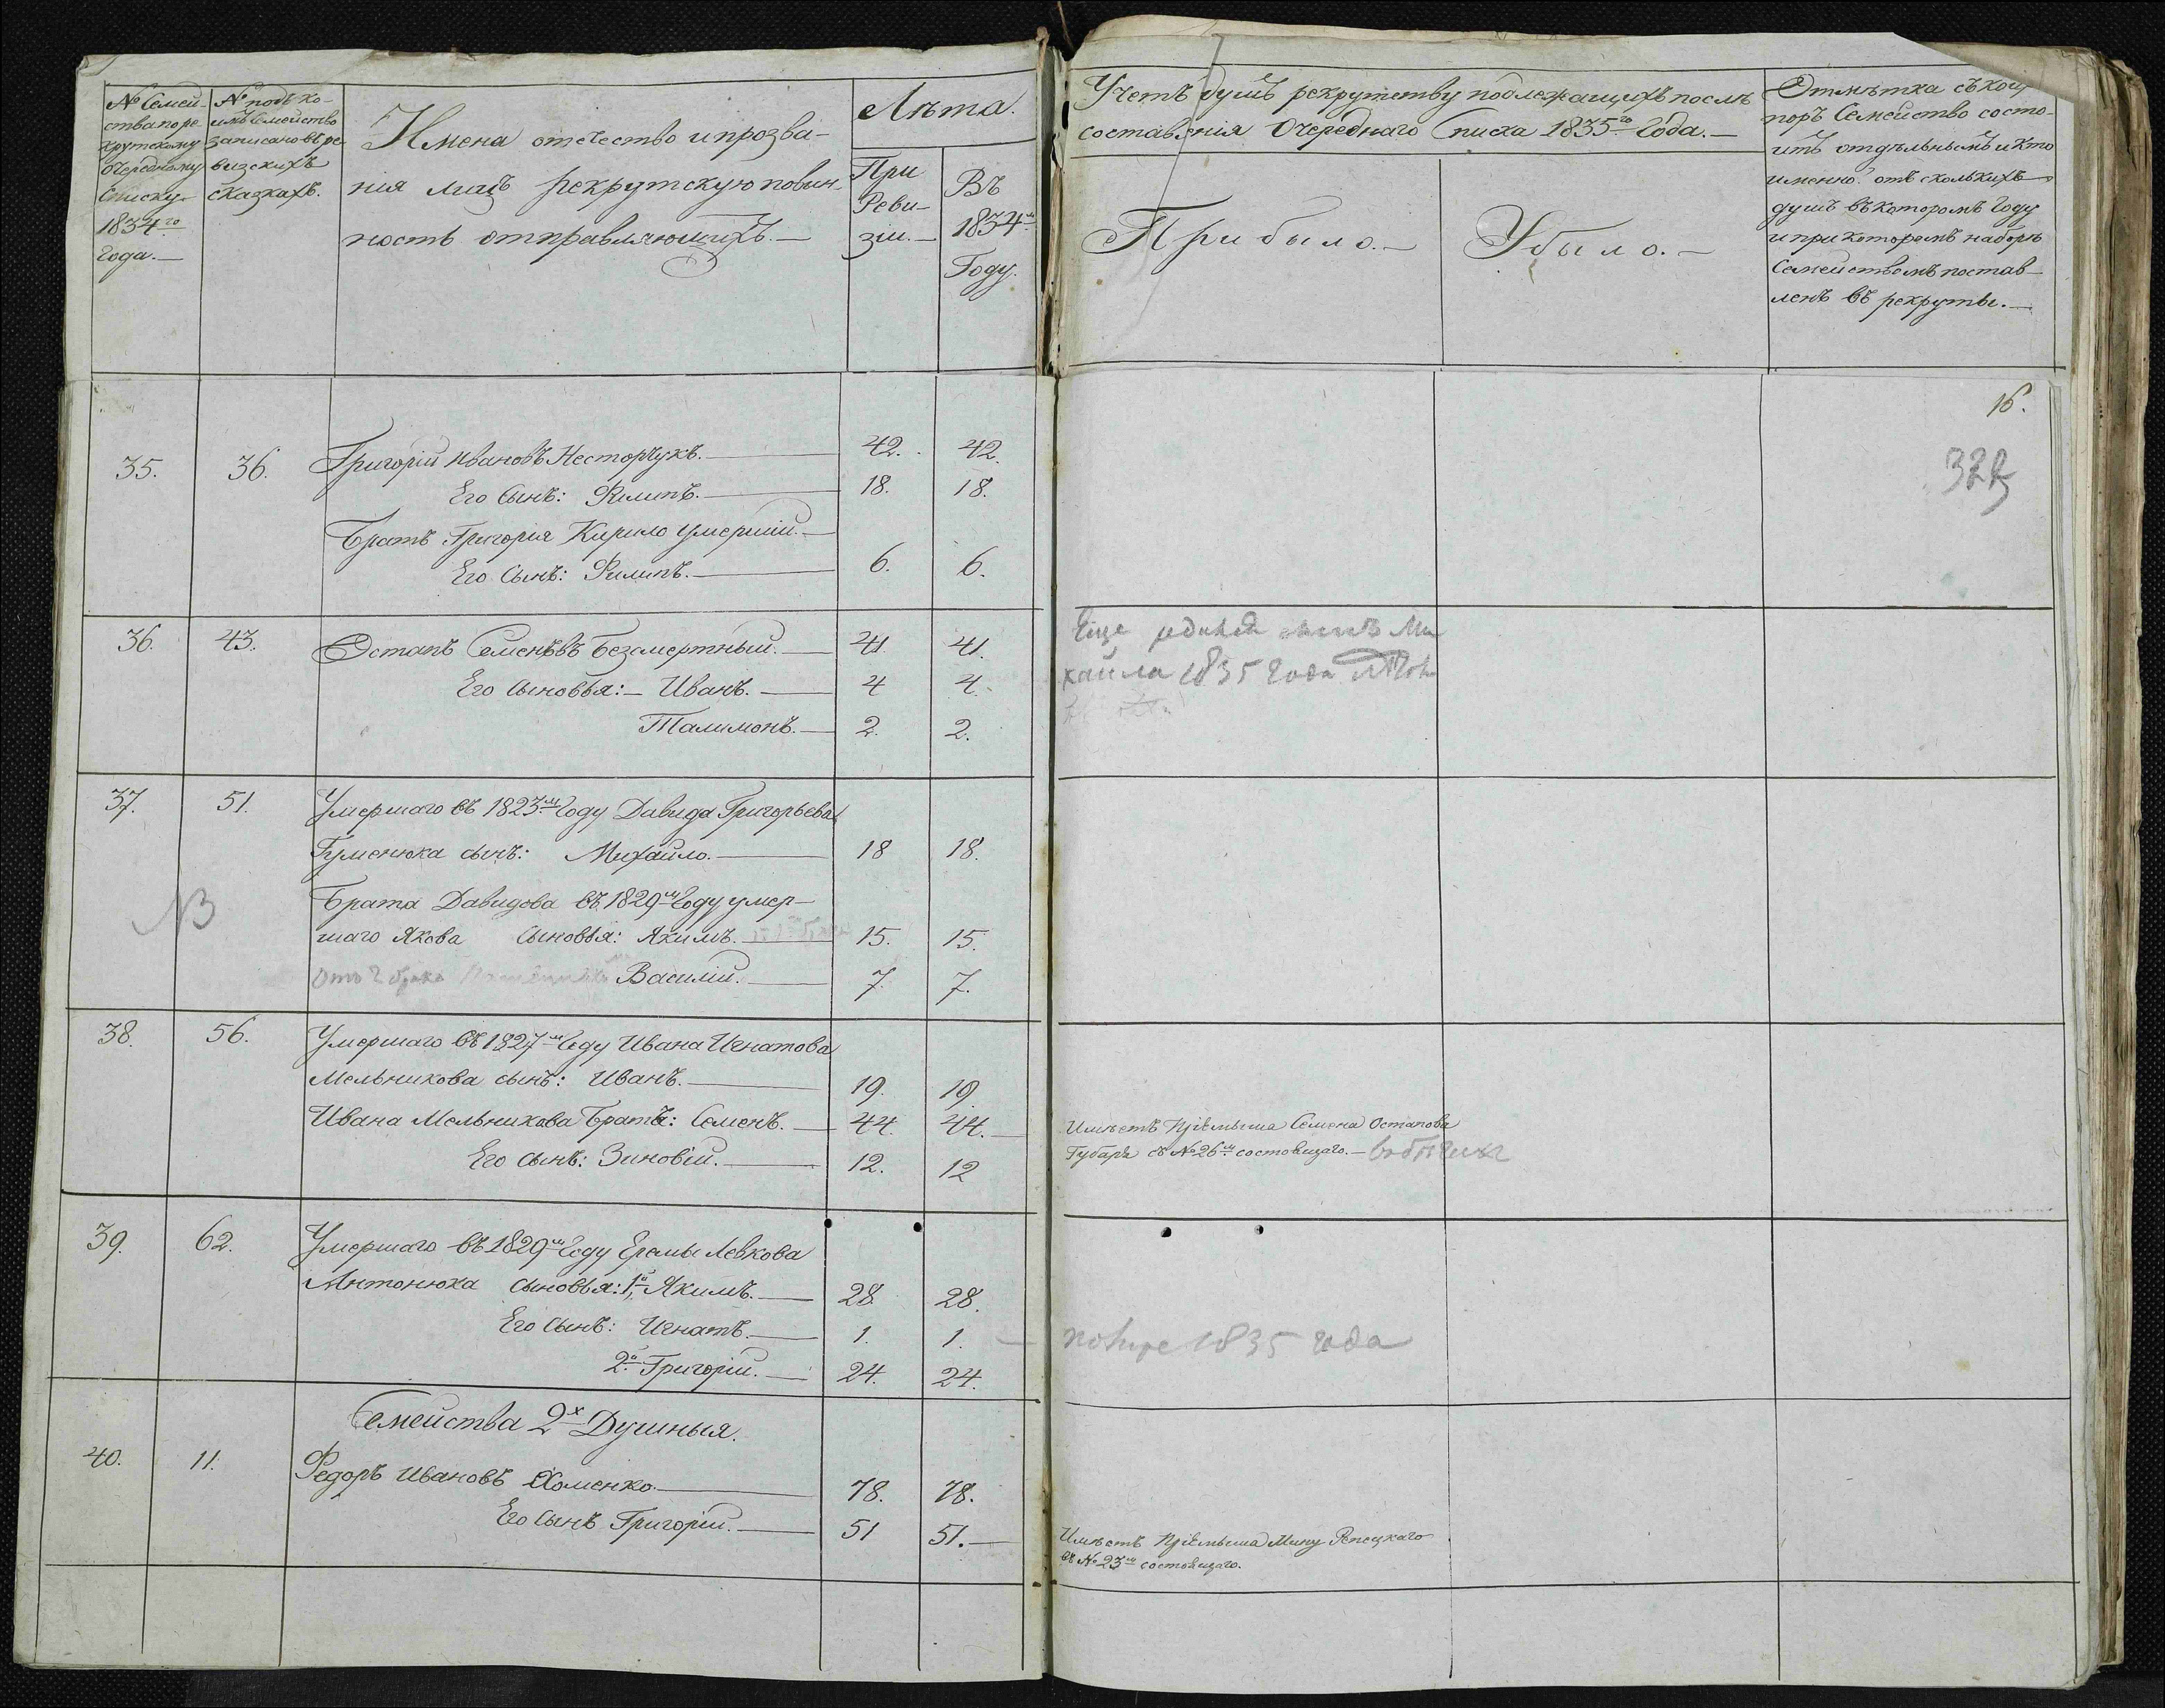 № Семей-
ства по ре-
крутскому
очередному
Списку
1834го
Года.—
№ подъ ко-
имъ Семейство
записано въ ре-
визскихъ
сказкахъ.
Имена отечество и прозва-
нія лицъ рекрутскую повин-
ность отправляющихъ.—
Лѣта.
При
Реви-
зіи.—
Въ
1834м
Году.
Учетъ душъ рекрутству подлежащихъ послѣ
составленія Очереднаго Списка 1835го Года.—
Прибыло.—
Убыло.—
Отмѣтка съ коихъ
поръ Семейство состо-
итъ отдѣльнымъ и кто
именно отъ сколькихъ
душъ въ которомъ Году
и при которомъ наборѣ
Семействомъ постав-
ленъ въ рекруты.—
16.
35. 36. Григорій Ивановъ Несторчукъ.— 42. 42.
Его Сынъ: Филипъ.— 18. 18.
Братъ Григорія Кирило умершій.—
Его Сынъ: Филипъ.— 6. 6.
36. 43. Остапъ Семеновъ Безсмертный.— 41. 41. Еще родился сынъ Ми
Его Сыновья:— Иванъ.— 4 4. хайла 1835 года
Талимонъ.— 2. 2.
37. 51. Умершаго въ 1823м Году Давида Григорьева
Гуменюка сынъ: Михайло.— 18 18.
NB
Брата Давидова въ 1829м Году умер-
шаго Якова Сыновья: Якимъ.— 15. 15.
Отъ 2 брака Василій.— 7. 7.
38. 56. Умершаго въ 1827м Году Ивана Игнатова
Мельникова сынъ: Иванъ.— 19. 19
Ивана Мельникова Братъ: Семенъ.— 44. 44.— Имѣетъ Пріемыша Семена Остапова
Губаря въ №26м состоящаго.—
Его Сынъ: Зиновій.— 12. 12
39. 62. Умершаго въ 1829м Году Еремы Левкова
Антонюка сыновья: 1й Якимъ.— 28. 28.
Его Сынъ: Игнатъ.— 1. 1. — помре 1835 года
2й Григорій.— 24. 24.
Семейства 2х Душныя.
40. 11. Федоръ Ивановъ Хоменко.— 78. 78.
Его Сынъ Григорій.— 51 51.— Имѣетъ Пріемыша Мину Репецкаго
въ №23м состоящаго.